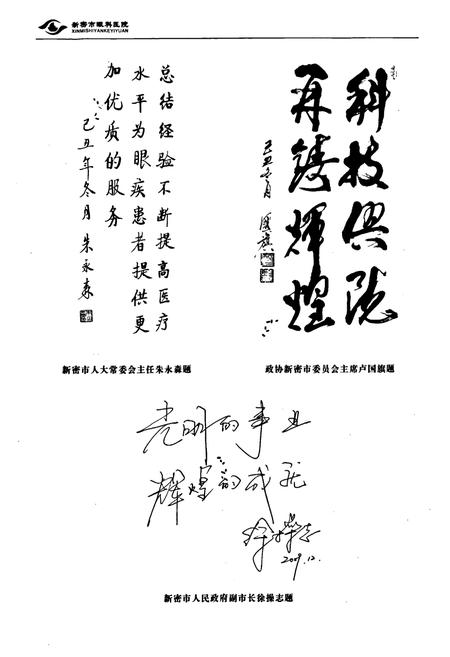 新密市眼科医院
XINMISHIYANKEYIYUAN
科技兴院
再铸辉煌
己丑冬月 国旗
总结经验不断提高医疗
水平为眼疾患者提供更
加优质的服务
己丑年冬月 朱永森
新密市人大常委会主任朱永淼题
政协新密市委员会主席卢国旗题
光明的事业
辉煌的成就
徐操志
2009.12.
新密市人民政府副市长徐操志题